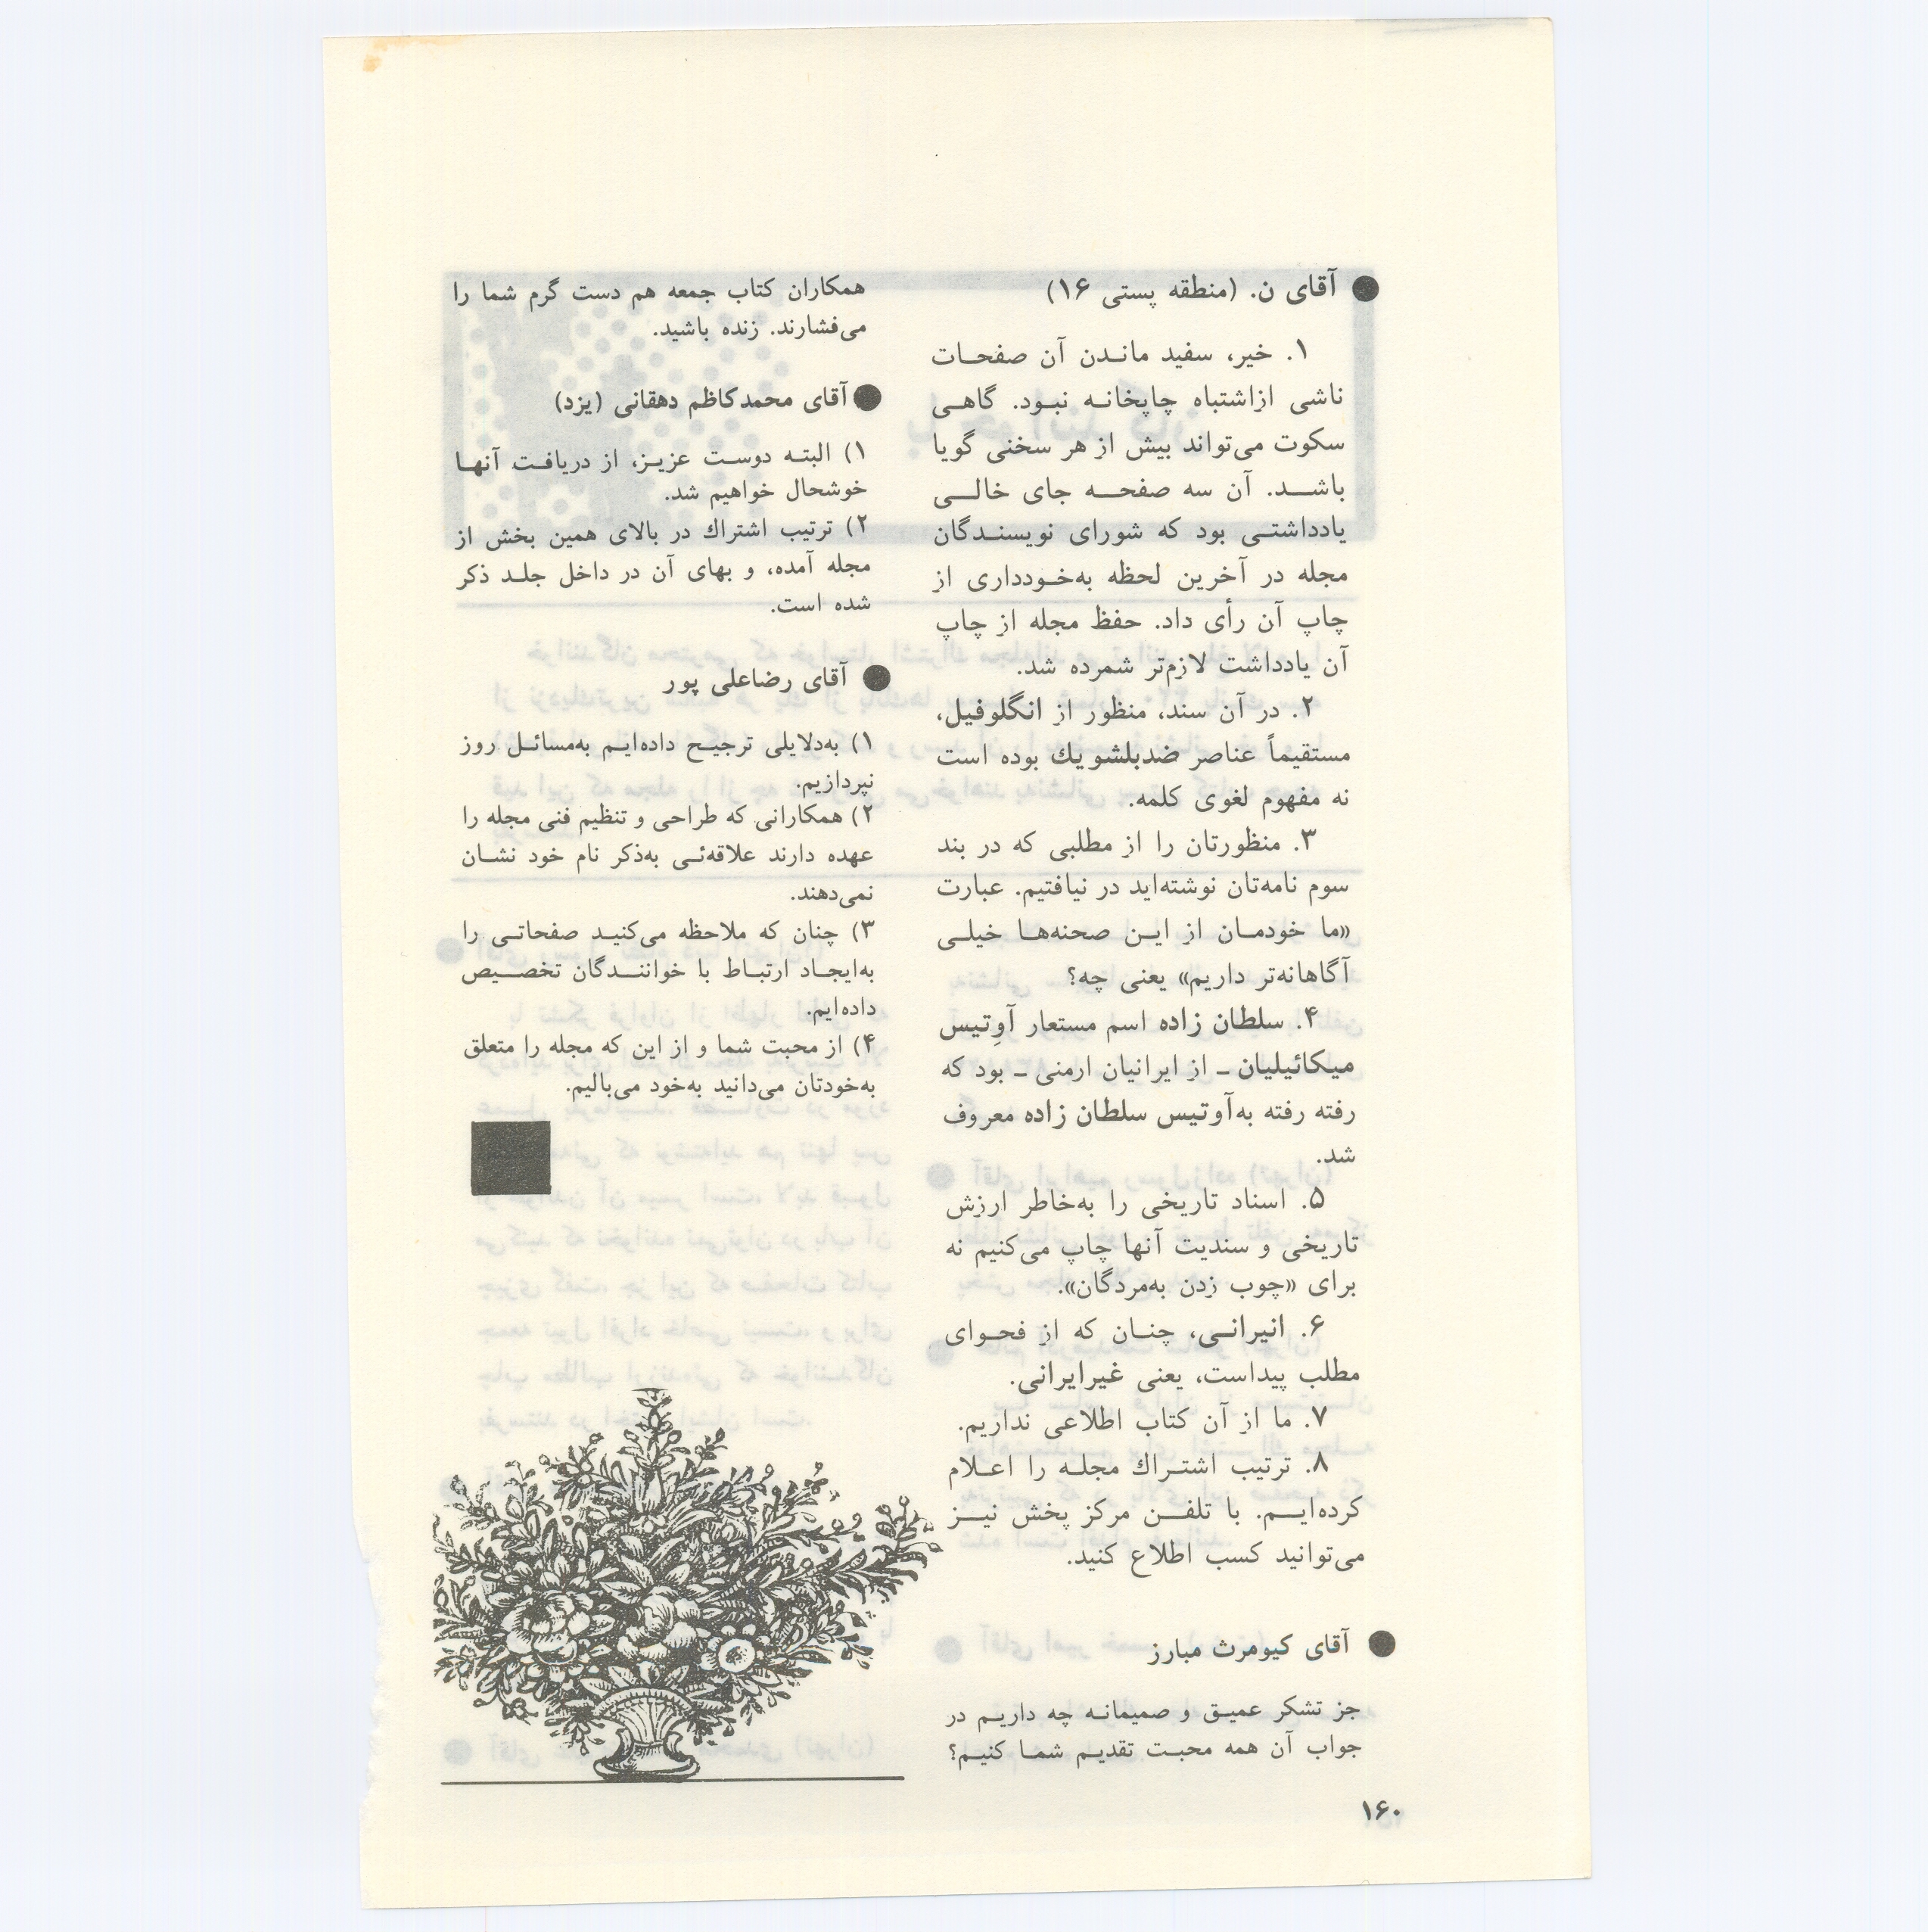 ● آقای ن. (منطقه پستی ۱۶)
۱. خیر، سفید مانـدن آن صفحـات
ناشی ازاشتباه چاپخانـه نبـود. گاهـی
سکوت می‌تواند بیش از هر سخنی گویا
باشـــد. آن سه صفحـــه جای خالـــی
یادداشتـی بود که شورای نویسنـدگان
مجله در آخرین لحظه به‌خـودداری از
چاپ آن رأی داد. حفظ مجله از چاپ
آن یادداشت لازم‌تر شمرده شد.
۲. در آن سند، منظور از انگلوفیل،
مستقیماً عناصر ضدبلشویك بوده است
نه مفهوم لغوی کلمه.
۳. منظورتان را از مطلبی که در بند
سوم نامه‌تان نوشته‌اید در نیافتیم. عبارت
«ما خودمـان از ایـن صحنه‌هـا خیلـی
آگاهانه‌تر داریم» یعنی چه؟
۴. سلطان زاده اسم مستعار آوِتیس
میکائیلیان ـ از ایرانیان ارمنی ـ بود که
رفته رفته به‌آوتیس سلطان زاده معروف
شد.
۵. اسناد تاریخی را به‌خاطر ارزش
تاریخی و سندیت آنها چاپ می‌کنیم نه
برای «چوب زدن به‌مردگان».
۶. انیرانـی، چنـان که از فحـوای
مطلب پیداست، یعنی غیرایرانی.
۷. ما از آن کتاب اطلاعی نداریم.
۸. ترتیب اشتـراك مجلـه را اعـلام
کرده‌ایـــم. با تلفـــن مرکز پخش نیـــز
می‌توانید کسب اطلاع کنید.
● آقای کیومرث مبارز
جز تشکر عمیـق و صمیمانـه چه داریـم در
جواب آن همه محبـت تقدیـم شمـا کنیـم؟
همکاران کتاب جمعه هم دست گرم شما را
می‌فشارند. زنده باشید.
● آقای محمدکاظم دهقانی (یزد)
۱) البتـه دوسـت عزیـز، از دریافـت آنهـا
خوشحال خواهیم شد.
۲) ترتیب اشتراك در بالای همین بخش از
مجله آمده، و بهای آن در داخل جلـد ذکر
شده است.
● آقای رضاعلی پور
۱) به‌دلایلی ترجیـح داده‌ایـم به‌مسائـل روز
نپردازیم.
۲) همکارانی که طراحی و تنظیم فنی مجله را
عهده دارند علاقه‌ئـی به‌ذکر نام خود نشـان
نمی‌دهند.
۳) چنان که ملاحظه می‌کنیـد صفحاتـی را
به‌ایجـاد ارتبـاط با خواننـــدگان تخصـــیص
داده‌ایم.
۴) از محبت شما و از این که مجله را متعلق
به‌خودتان می‌دانید به‌خود می‌بالیم.
۱۶۰